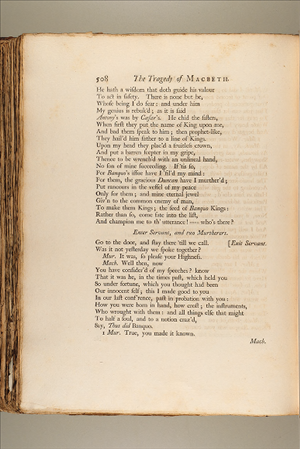 508 The Tragedy of MACBETH.
He hath a wisdom that doth guide his valour
To act in safety. There is none but he,
Whose being I do fear: and under him
My genius is rebuk'd; as it is said
Antony's was by Cæsar's. He chid the sisters,
When first they put the name of King upon me,
And bad them speak to him; then prophet-like,
They hail'd him father to a line of Kings.
Upon my head they plac'd a fruitless crown,
And put a barren scepter in my gripe,
Thence to be wrench'd with an unlineal hand,
No son of mine succeeding. If 'tis so,
For Banquo's issue have I 'fil'd my mind:
For them, the gracious Duncan have I murther'd;
Put rancours in the vessel of my peace
Only for them; and mine eternal jewel
Giv'n to the common enemy of man,
To make them Kings; the seed of Banquo Kings:
Rather than so, come fate into the list,
And champion me to th' utterance! — who's there?
Enter Servant, and two Murtherers.
Go to the door, and stay there 'till we call. [Exit Servant.
Was it not yesterday we spoke together?
Mur. It was, so please your Highness.
Macb. Well then, now
You have consider'd of my speeches? know
That it was he, in the times past, which held you
So under fortune, which you thought had been
Our innocent self; this I made good to you
In our last conf'rence, past in probation with you:
How you were born in hand, how crost; the instruments,
Who wrought with them: and all things else that might
To half a soul, and to a notion craz'd,
Say, Thus did Banquo.
1 Mur. True, you made it known.
Macb.